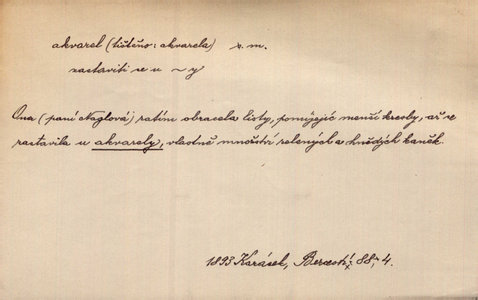 akvarel (tištěno: akvarela) s. m.
zastaviti se u ~y
Ona (paní Naglová) zatím obracela listy, pomíjejíc menší kresby, až se
zastavila u akvarely, vlastně množství zelených a hnědých kaněk.
1893 Karásek, Bezcestí, 88, 4.